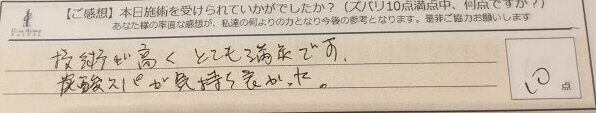 【ご感想】本日施術を受けられていかがでしたか？（ズバリ10点満点中、何点ですか？）
あなた様の率直な感想が、私達の何よりの力となり今後の参考となります。是非ご協力お願いします
技術が高くとても満足です。
炭酸スパが気持ち良かった。
10点